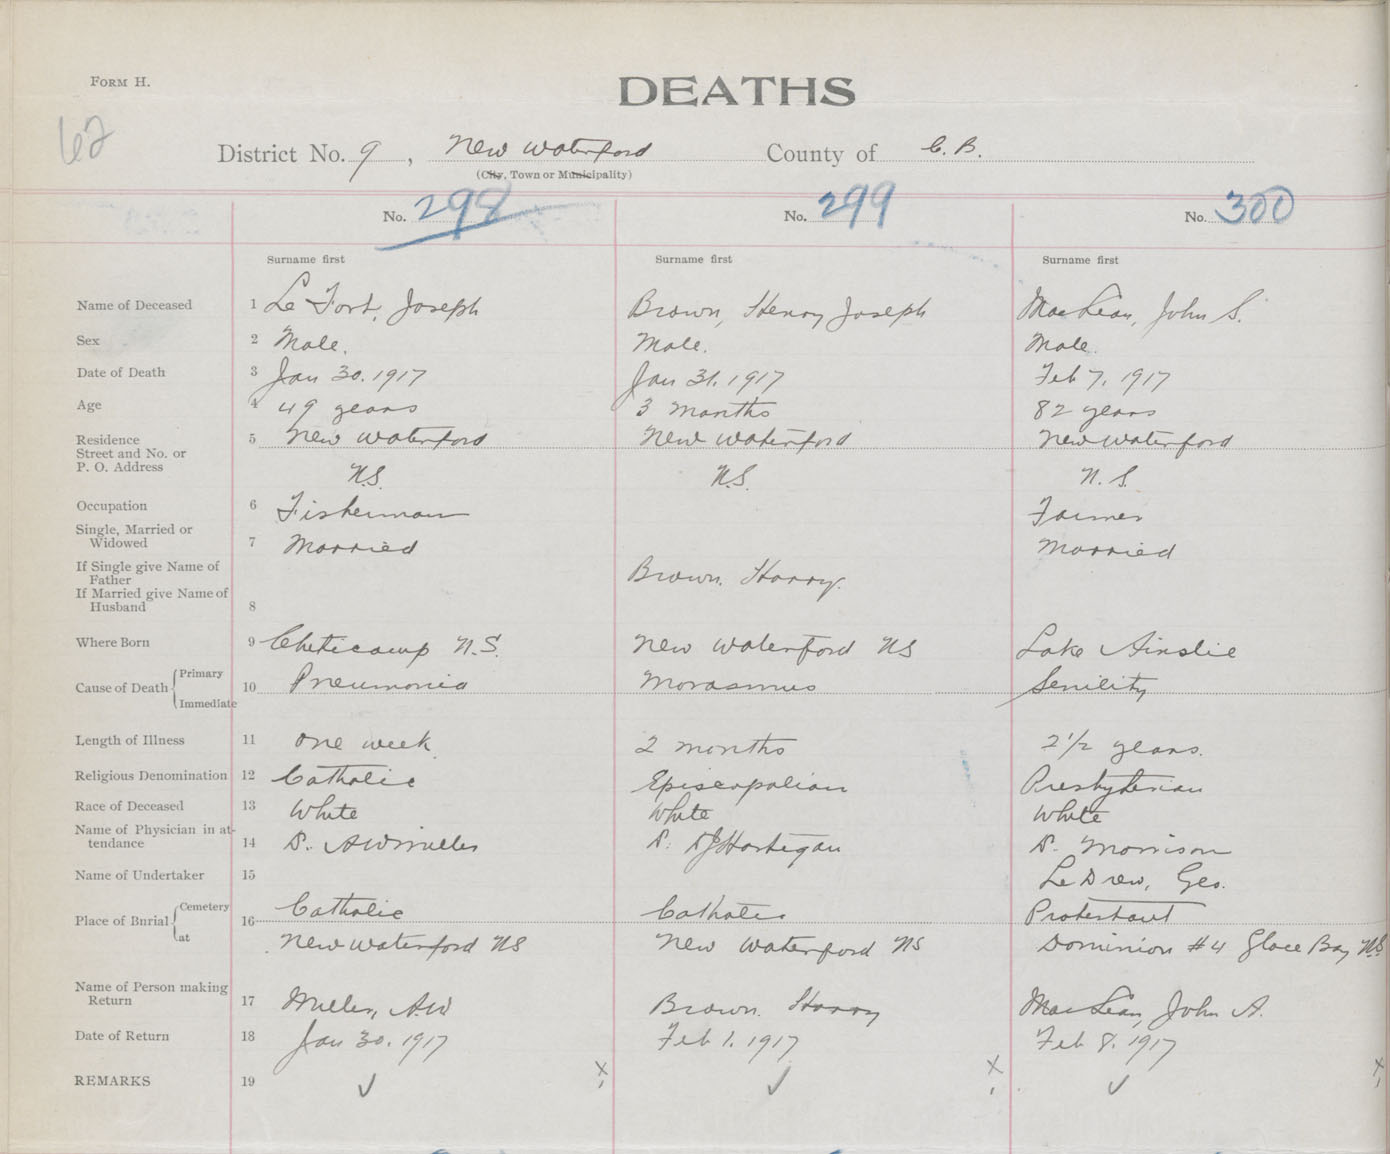 FORM H.
DEATHS
62
District No. 9, New Waterford County of C. B.
(City, Town or Municipality)
No. 298 No. 299 No. 300
Surname first Surname first Surname first
Name of Deceased 1 Le Fort, Joseph Brown, Henry Joseph MacLean, John S.
Sex 2 Male. Male. Male.
Date of Death 3 Jan 30. 1917 Jan 31. 1917 Feb 7, 1917
Age 4 49 years 3 months 82 years
Residence 5 New Waterford New Waterford New Waterford
Street and No. or
P. O. Address N.S. N.S. N. S.
Occupation 6 Fisherman Farmer
Single, Married or
Widowed 7 Married Married
If Single give Name of
Father Brown. Harry.
If Married give Name of
Husband 8
Where Born 9 Cheticamp N.S. New Waterford NS Lake Ainslie
Cause of Death Primary 10 Pneumonia Morasmus Senility
Immediate
Length of Illness 11 One week 2 months 2 1/2 years.
Religious Denomination 12 Catholic Episcopalian Presbyterian
Race of Deceased 13 White White White
Name of Physician in at-
tendance 14 D. AW Miller D. DJ Hartigan D. Morrison
Name of Undertaker 15 LeDrew, Geo.
Place of Burial Cemetery 16 Catholic Catholic Protestant
at New Waterford NS New Waterford NS Dominion #4 Glace Bay N.S.
Name of Person making
Return 17 Miller, A.W Brown. Harry MacLean, John A.
Date of Return 18 Jan 30. 1917 Feb 1. 1917 Feb 8. 1917
REMARKS 19 ✓ x ✓ x ✓ x